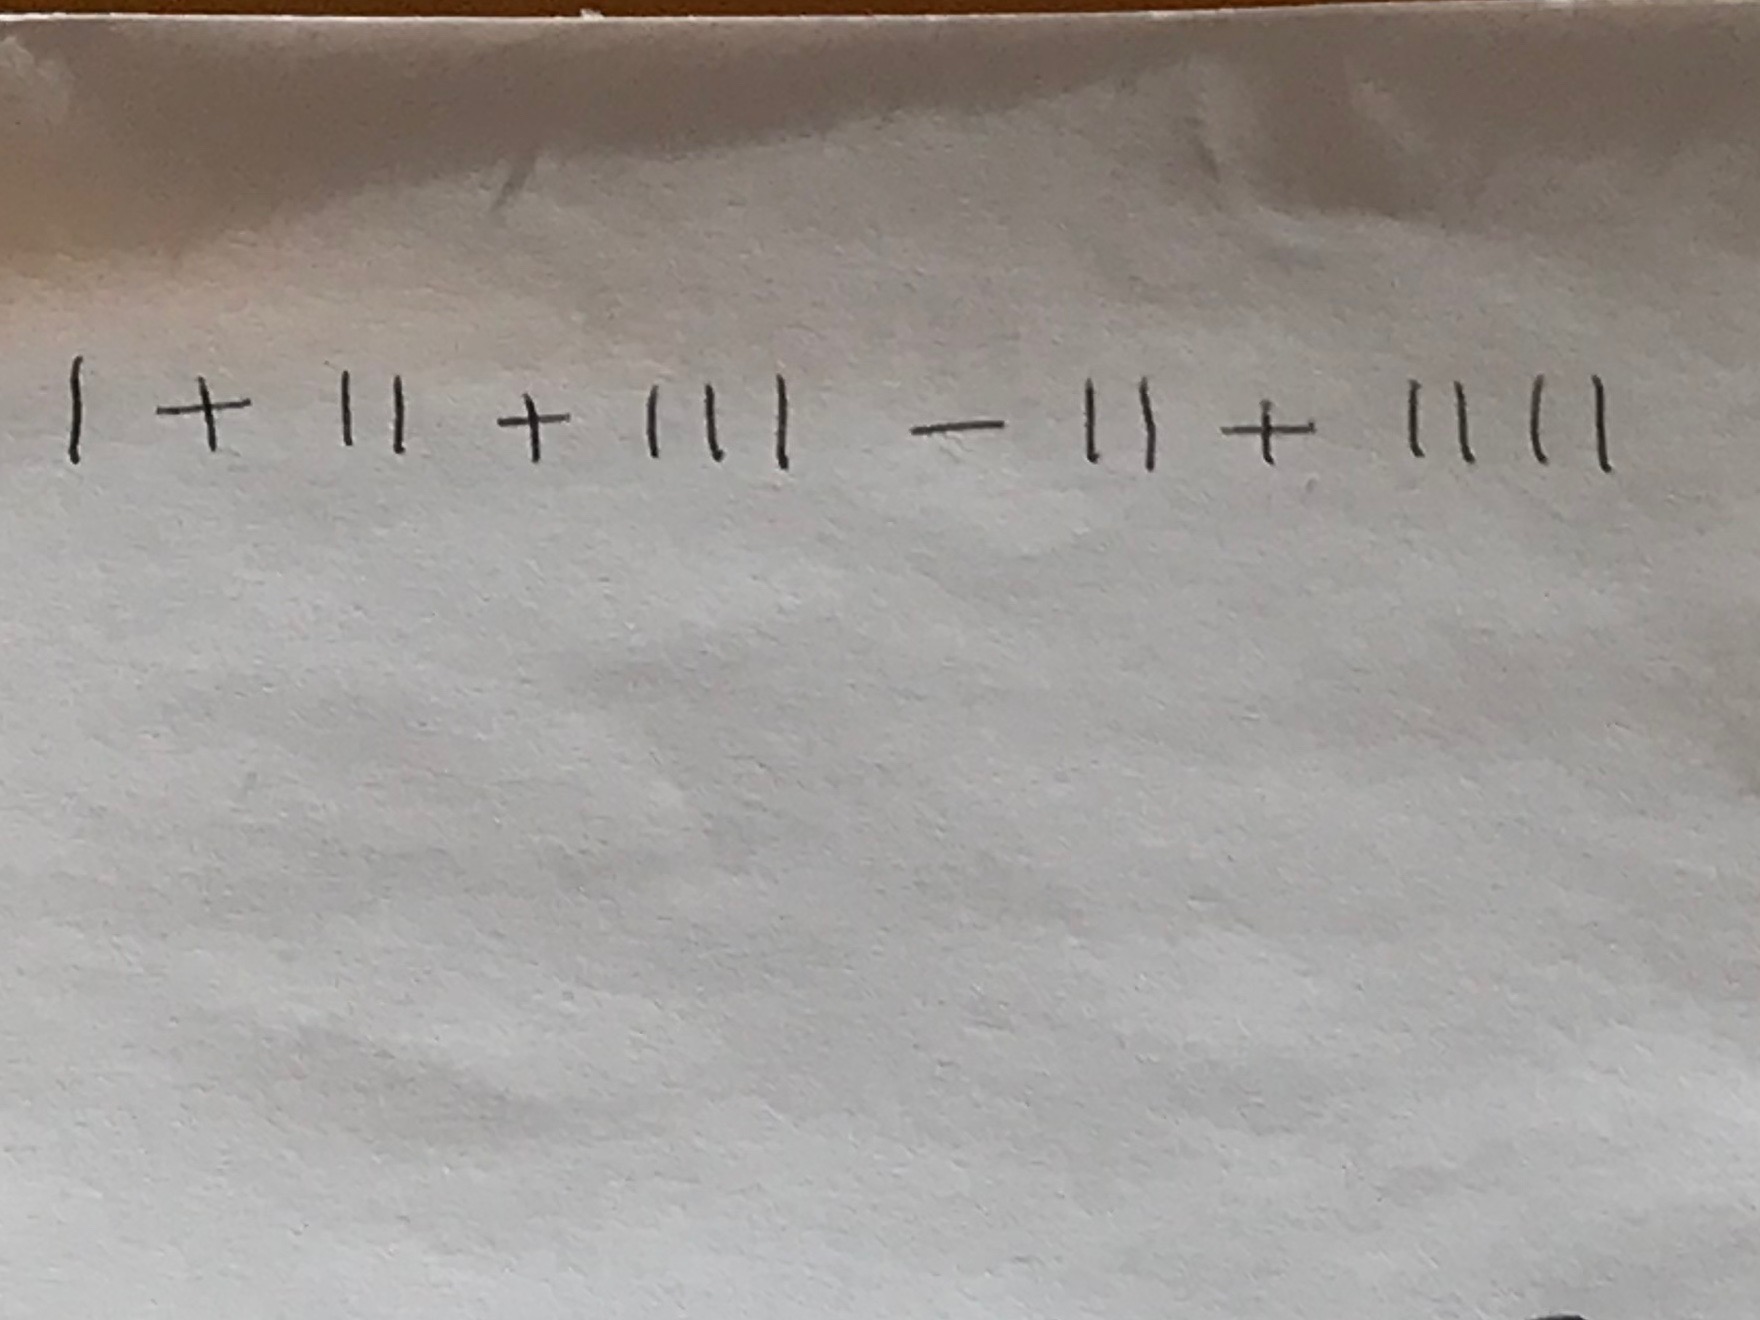 | + || + ||| - || + ||||